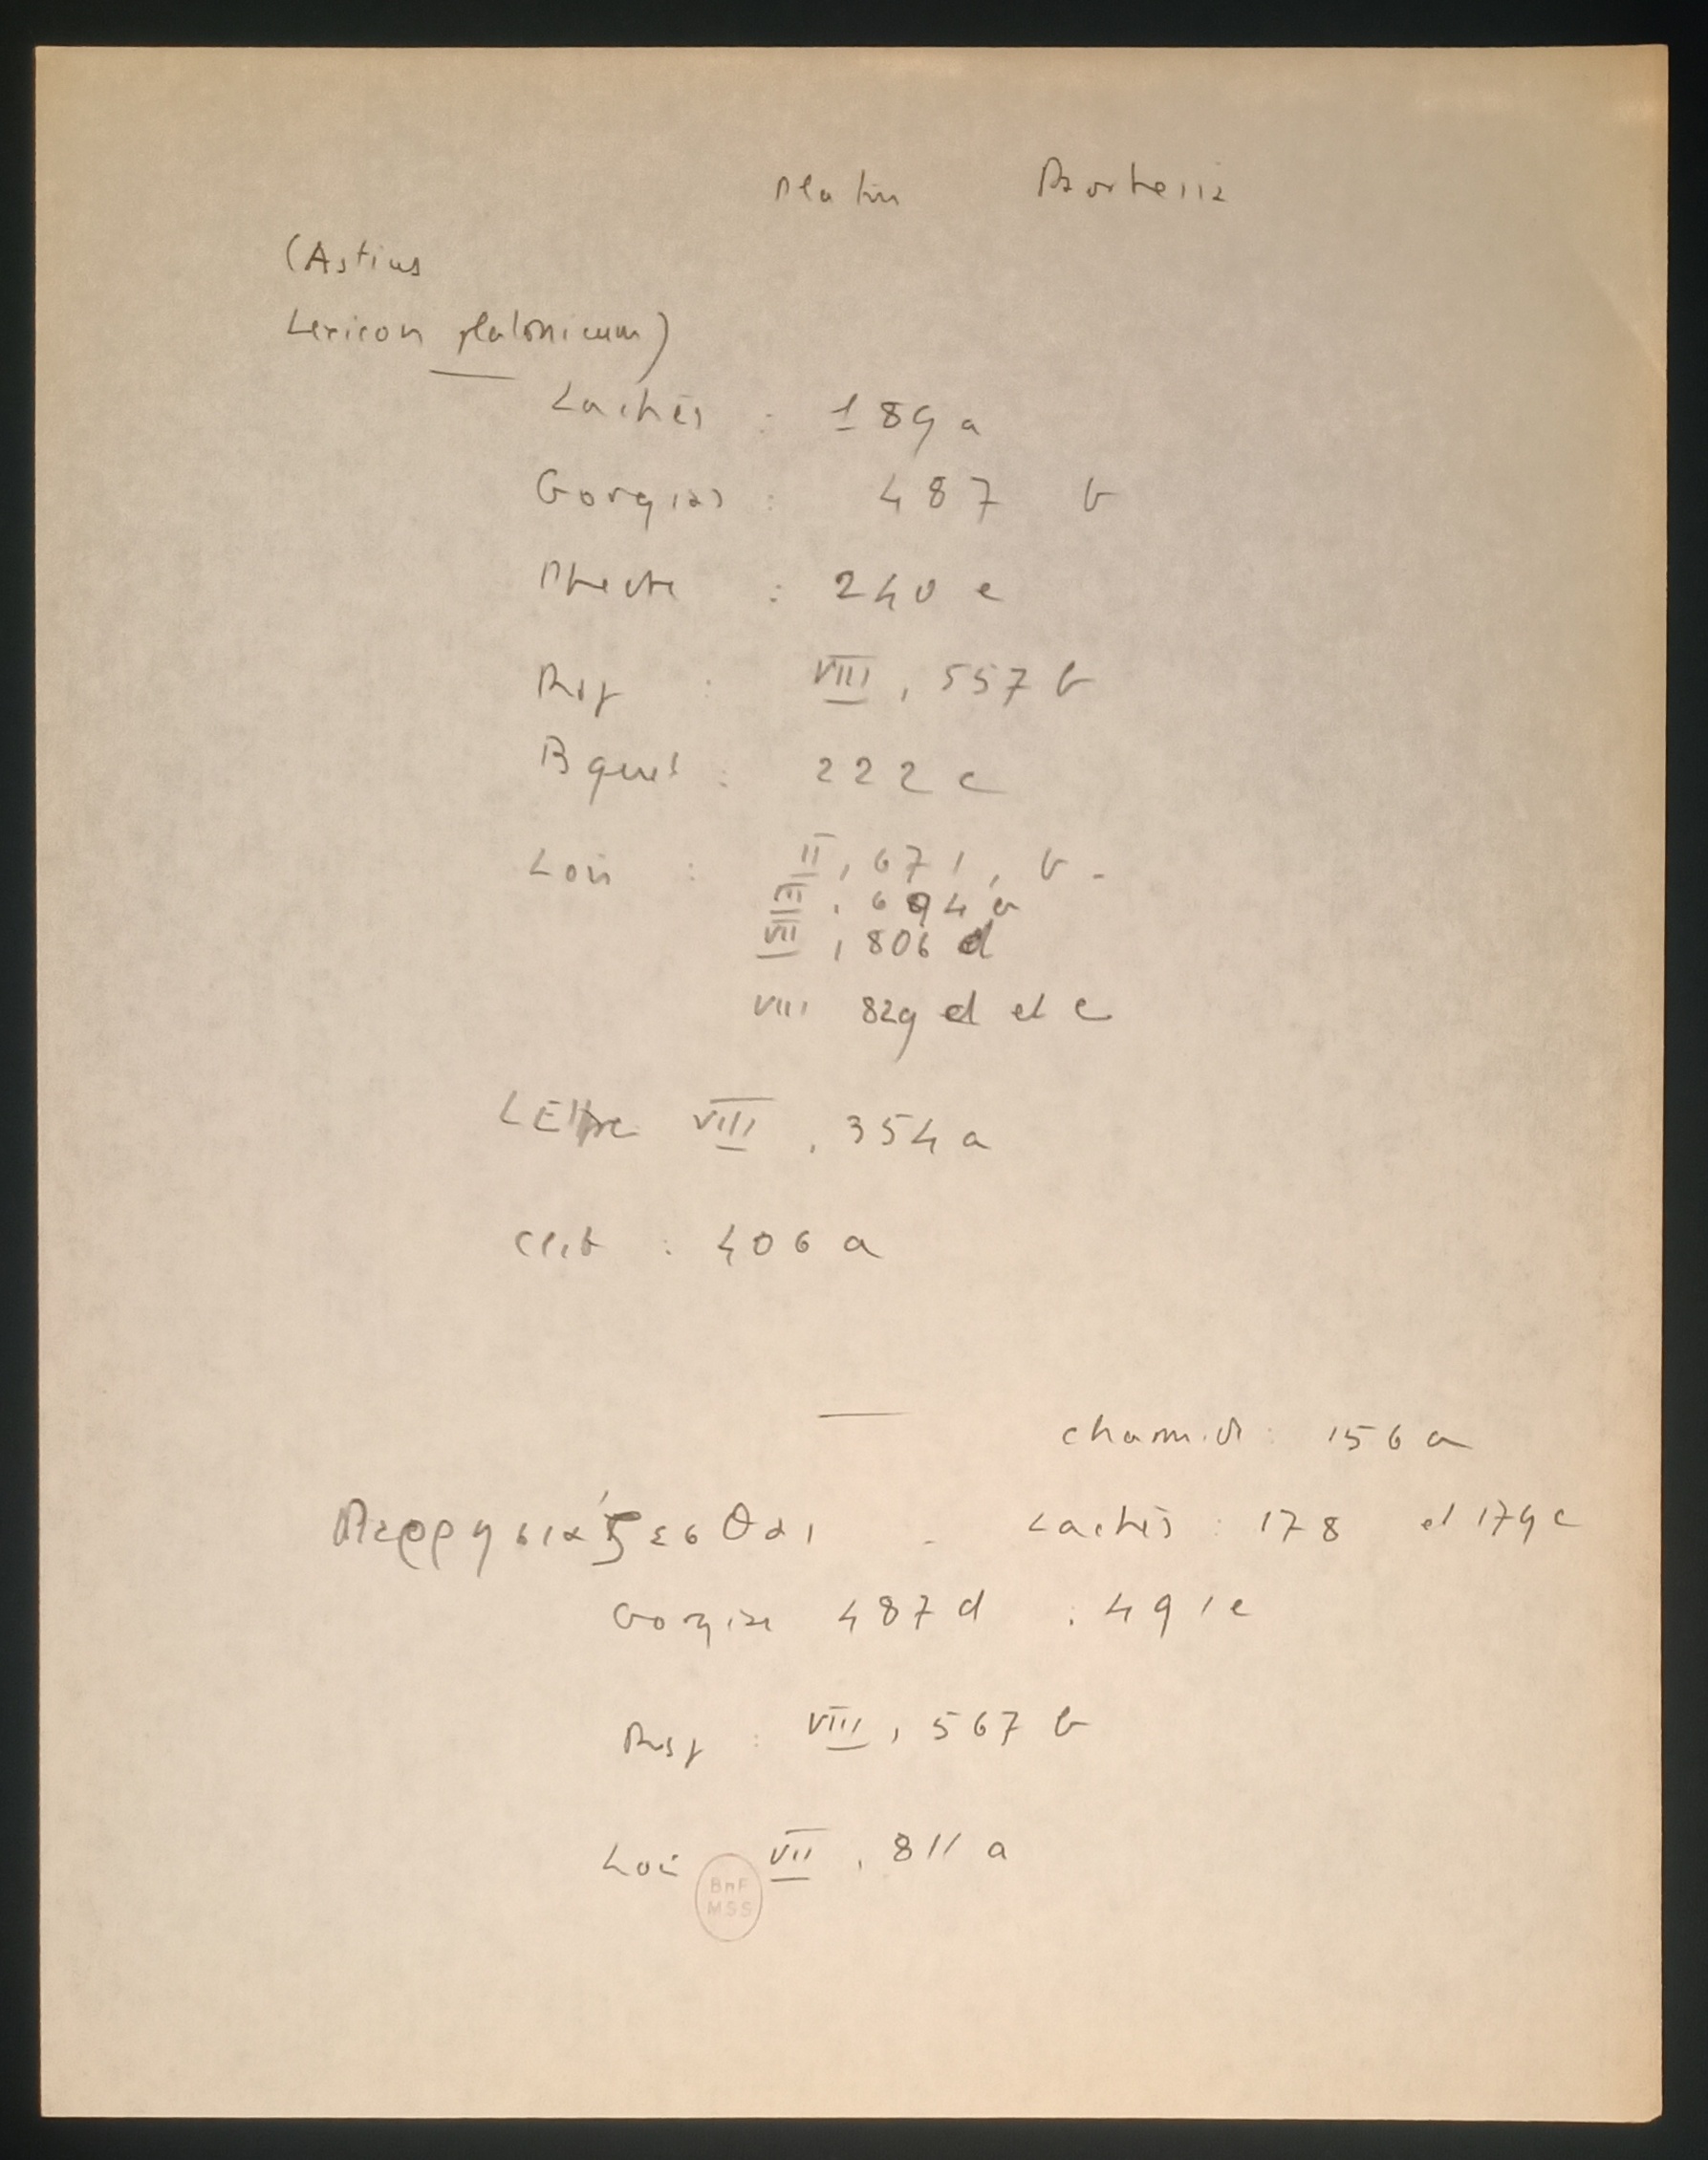 Platon Parrhesia
(Astius
Lexicon platonicum)
Lachès : 189 a
Gorgias : 487 b
Phèdre : 240 e
Rep : VIII, 557 b
Bquet : 222 c
Lois : II, 671, b -
III, 694 b
VII, 806 d
VIII 829 d et e
LEttre VIII, 354 a
Clit : 406 a
Charmide : 156 a
Παρρησιάζεσθαι - Lachès : 178 et 179 c
Gorgias 487 d . 491 e
Rep : VIII, 567 b
Loi VII, 811 a
BnF
MSS